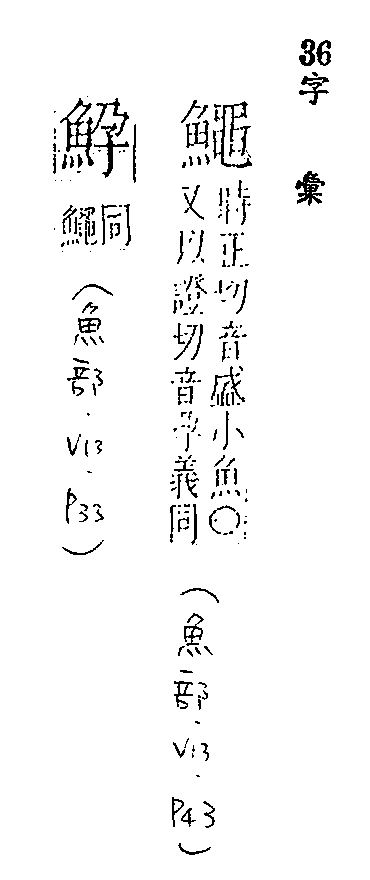 36字彙
鱦
時正切音盛小魚〇
又以證切音孕義同
(魚部.V13.P43)
䱆
同
鱦
(魚部.V13.P33)